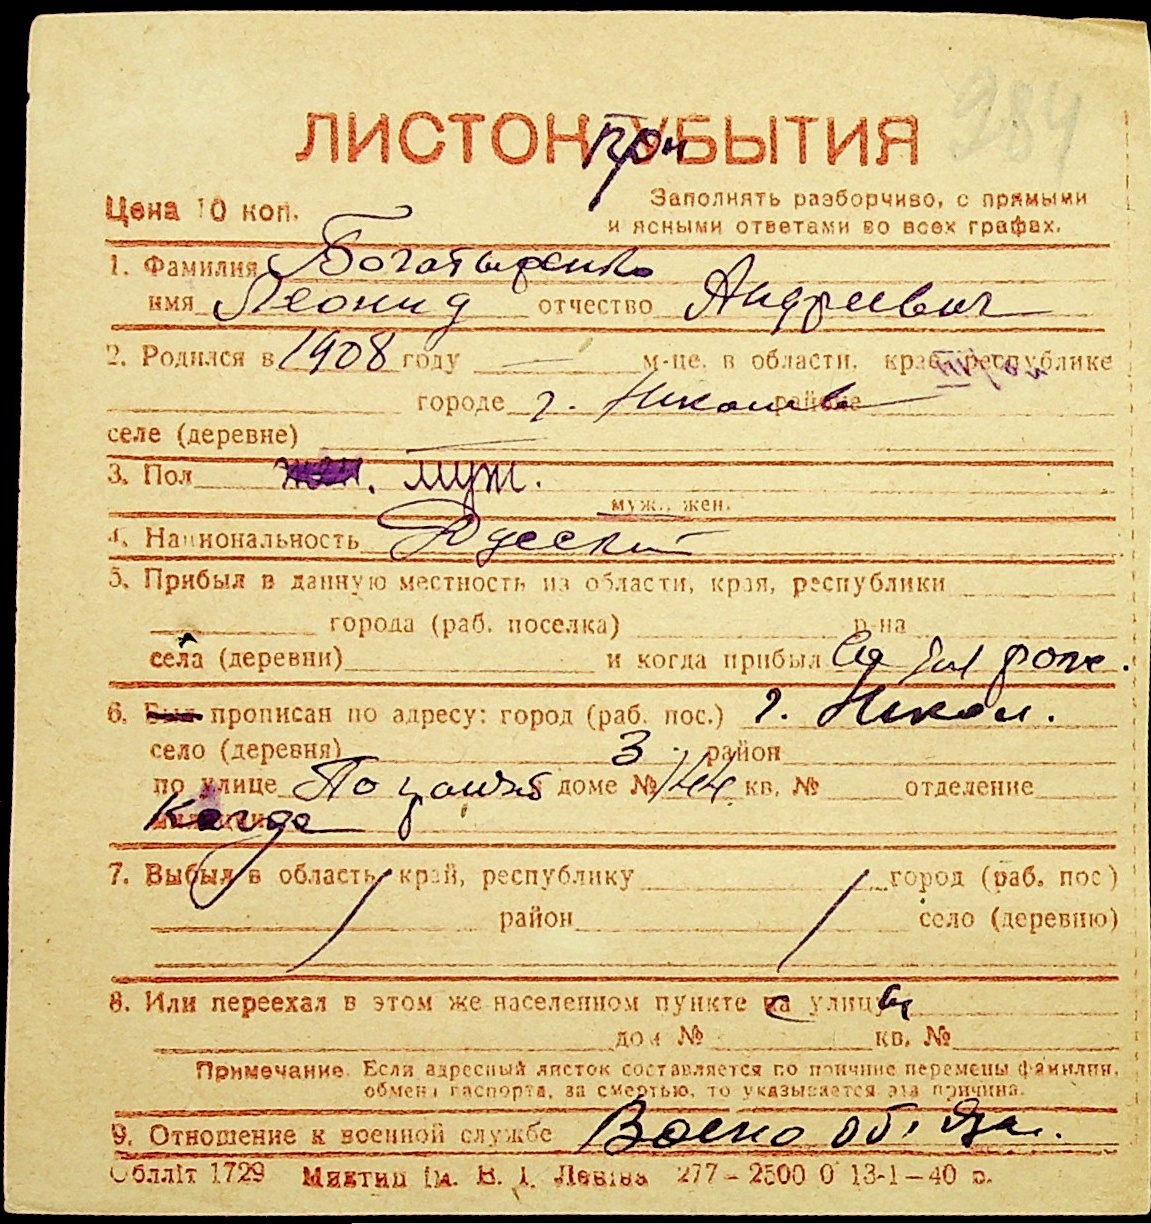 284
ЛИСТОК УБЫТИЯ
При
Цена 10 коп.
Заполнять разборчиво, с прямыми
и ясными ответами во всех графах.
1. Фамилия Богатыренко
имя Леонид отчество Андреевич
2. Родился в 1908 году м-це, в области, крае, республике
городе г. Николаев районе
селе (деревне)
3. Пол жен. муж.
муж., жен.
4. Национальность
5. Прибыл в данную местность из области, края, республики
города (раб. поселка) р-на
села (деревни) и когда прибыл
6. Был прописан по адресу: город (раб. пос.) г. Никол.
село (деревня) 3 район
по улице доме № 144 кв. № отделение
когда
7. Выбыл в область, край, республику город (раб. пос)
район село (деревню)
8. Или переехал в этом же населенном пункте на улицу
дом № кв. №
Примечание. Если адресный листок составляется по причине перемены фамилии,
обмена паспорта, за смертью, то указывается эта причина.
9. Отношение к военной службе Воено об.
Облліт 1729 277–2500 0 13-1–40 р.